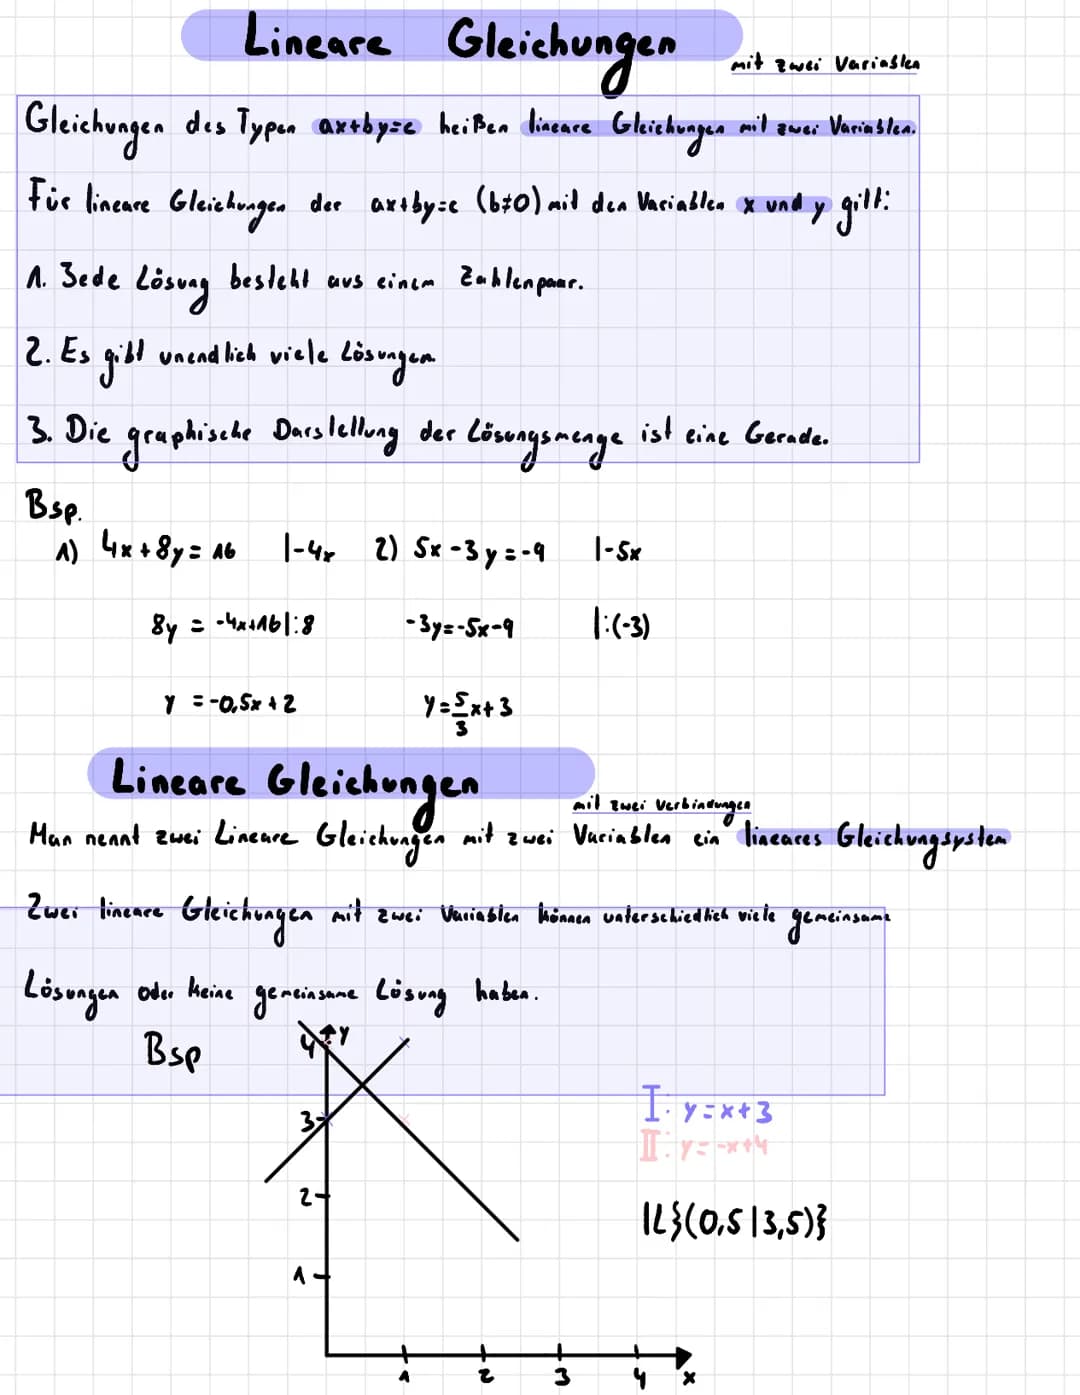 Lineare Gleichungen
mit zwei Variablen
Gleichungen des Typen ax+by=c heißen lineare Gleichungen mit zwei Variablen.
Für lineare Gleichungen der ax+by=c (b≠0) mit den Variablen x und y gilt:
1. Jede Lösung besteht aus einem Zahlenpaar.
2. Es gibt unendlich viele Lösungen
3. Die graphische Darstellung der Lösungsmenge ist eine Gerade.
Bsp.
1) 4x+8y=16 |-4x 2) 5x-3y=-9 |-5x
8y = -4x+16 |:8 -3y=-5x-9 |:(-3)
y = -0,5x+2 y=5/3x+3
Lineare Gleichungen
mit zwei Verbindungen
Man nennt zwei Lineare Gleichungen mit zwei Variablen ein lineares Gleichungsystem
Zwei lineare Gleichungen mit zwei Variablen können unterschiedlich viele gemeinsame
Lösungen oder keine gemeinsame Lösung haben.
Bsp
4 y
I: y=x+3
3
II: y=-x+4
2
IL}(0,5|3,5)}
1
1 2 3 4 x